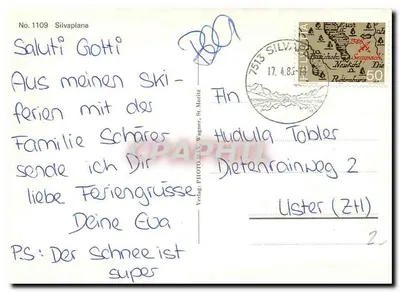 No. 1109 Silvaplana
Saluti Gotti
Aus meinen Ski-
ferien mit der
Familie Schärer
sende ich Dir
liebe Feriengrüsse
Deine Eva
P.S: Der Schnee ist
super
Verlag: PHOTO Wagner, St. Moritz
7513 SILVAPLANA
17. 4. 8
50
An
Hudula Tobler
Dietenrainweg 2
Uster (ZH)
2.-